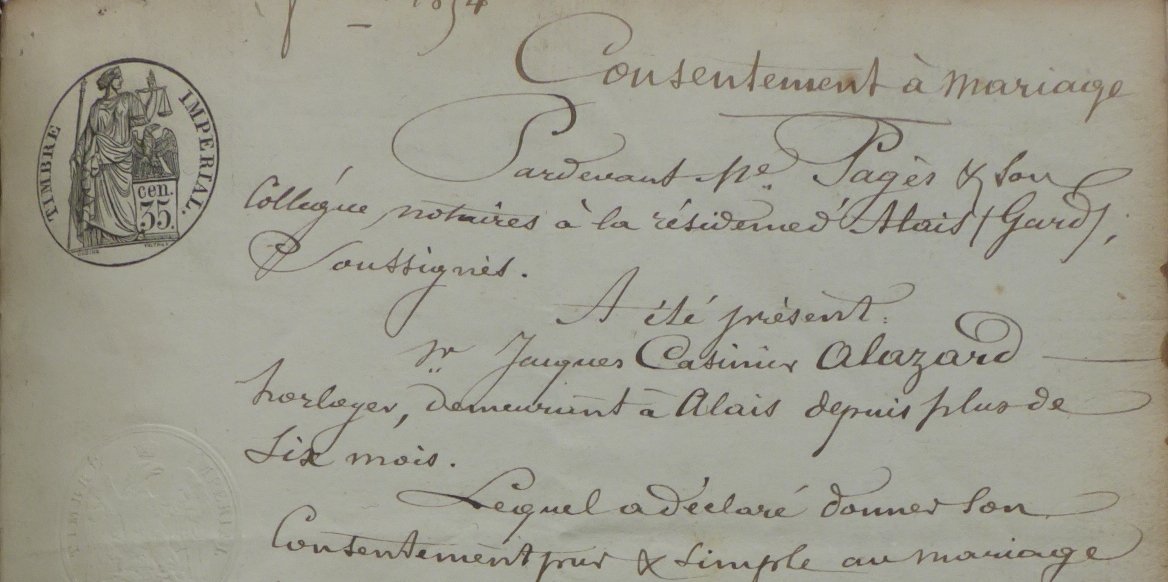 1854
Consentement à mariage
TIMBRE IMPERIAL.
cen.
35.
Pardevant Me Pagès & son
Collègue, notaires à la résidence d'Alais (Gard),
Soussignés.
A été présent:
Sr Jacques Casimir Alazard
horloger, demeurant à Alais depuis plus de
Six mois.
Lequel a déclaré donner son
Consentement pur & simple au mariage